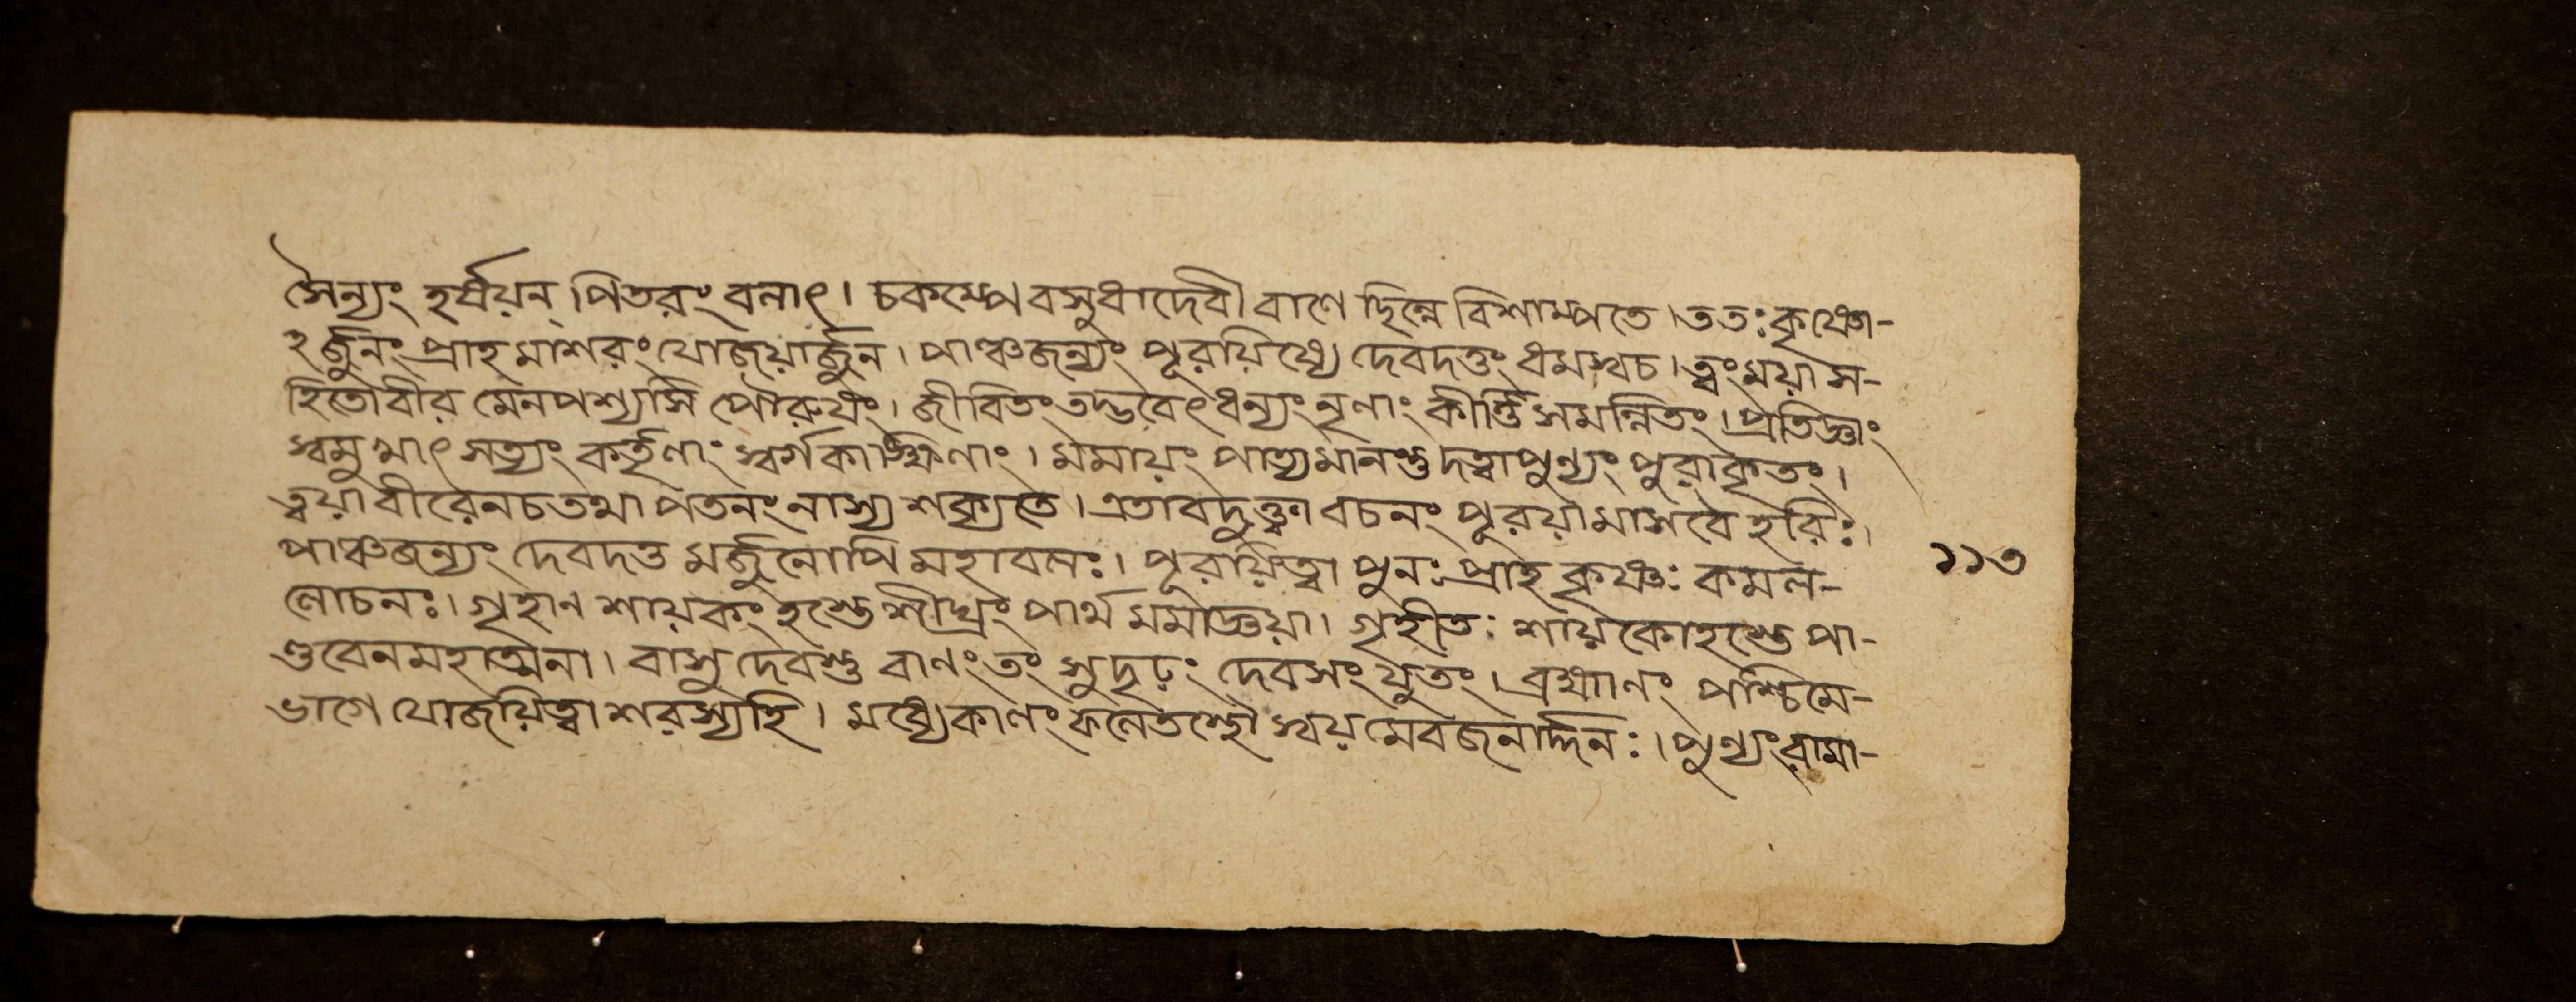 সৈন্যং হর্ষয়ন্ পিতরং বলাৎ। চকম্পে বসুধাদেবী বাণে ছিন্নে বিশাম্পতে। ততঃ কৃষ্ণো-
ঽর্জুনং প্রাহ মাশরং যোজয়ার্জুন। পাঞ্চজন্যং পূরয়িষ্যে দেবদত্তং ধমস্বচ। ত্বং ময়া স-
হিতো বীর মেনপশ্যসি পৌরুষং। জীবিতং তদ্ভবেৎ ধন্যং নৃণাং কীর্ত্তি সমন্নিতং। প্রতিজ্ঞাং
স্বমুখাৎ সত্যং কর্তৃণাং স্বর্গকাঙ্ক্ষিণাং। মমায়ং পাত্যমানস্তু দত্বা পুণ্যং পুরাকৃতং।
ত্বয়া বীরেনচ তথা পতনং নাস্য শক্যতে। এতাবদুক্ত্বা বচনং পূরয়ামাসবৈ হরিঃ।
পাঞ্চজন্যং দেবদত্ত মর্জুনোপি মহাবলঃ। পূরয়িত্বা পুনঃ প্রাহ কৃষ্ণঃ কমল-
লোচনঃ। গৃহাণ শায়কং হস্তে শীঘ্রং পার্থ মমাজ্ঞয়া। গৃহীতঃ শায়কোহস্তে পা-
ণ্ডবেন মহাত্মনা। বাসুদেবস্তু বাণং তং সুদৃঢ়ং দেবসংযুতং। ব্রহ্মাণং পশ্চিমে-
ভাগে যোজয়িত্বা শরস্যহি। মধ্যেকালং ফলেতস্থৌ স্বয়মেবজনার্দ্দনঃ। পুণ্যংরামা-
১১৩